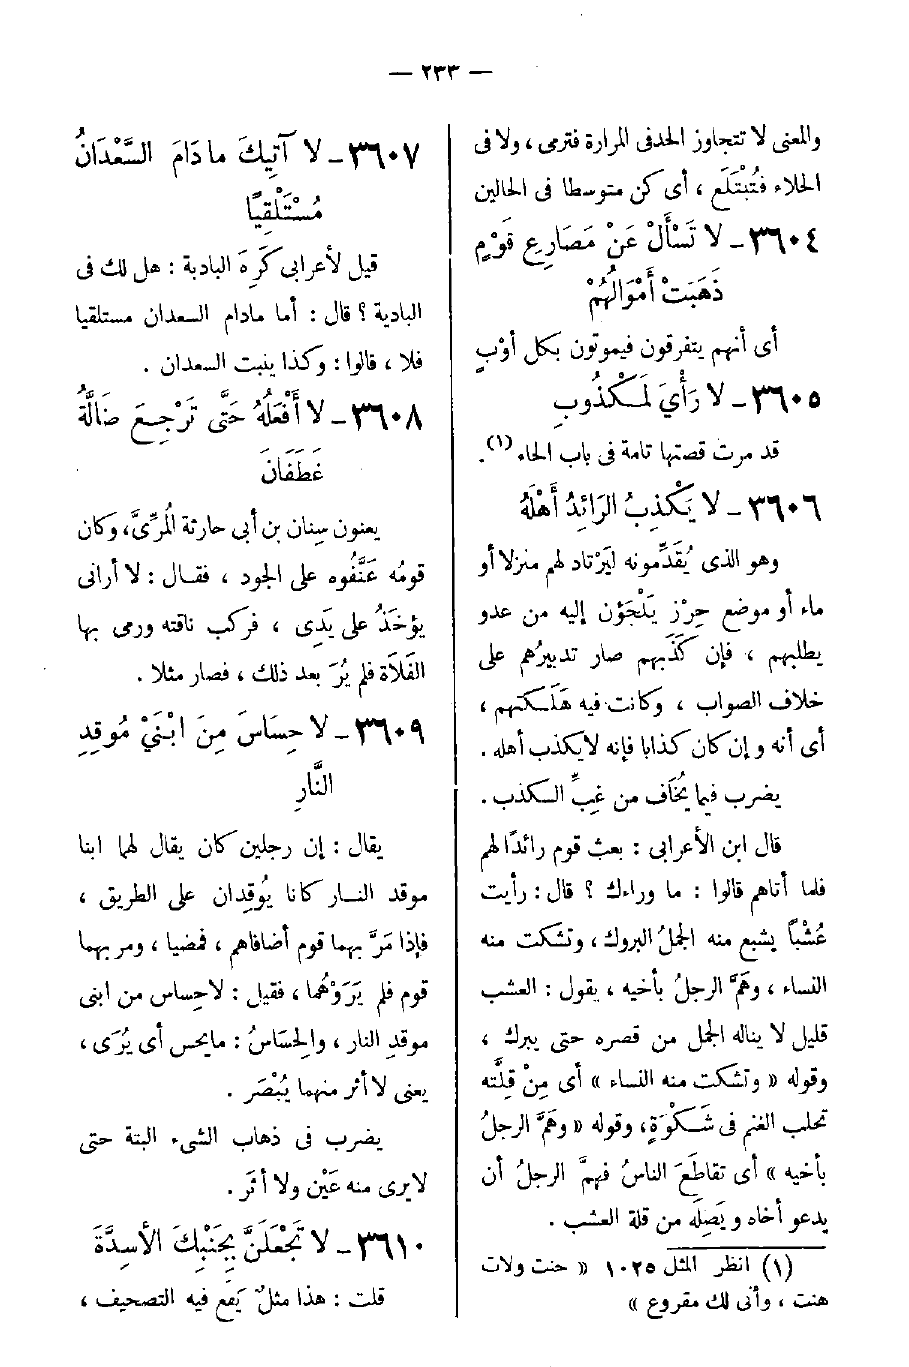 — ٢٣٣ —
والمعنى لا تتجاوز الحد فى المرارة فترمى ، ولا فى
الحلاء فَتُبْتَلَع ، أى كن متوسطا فى الحالين
٣٦٠٤ - لاَ تَسْأَلْ عَنْ مَصَارِعِ قَوْمٍ
ذَهَبَتْ أَمْوَالُهُمْ
أى أنهم يتفرقون فيموتون بكل أوْبٍ
٣٦٠٥ - لاَ رَأْيَ لِمَكْذُوبٍ
قد مرت قصتها تامة فى باب الحاء (١).
٣٦٠٦ - لاَ يَكْذِبُ الرَائِدُ أَهْلَهُ
وهو الذى يُقَدِّمونه لِيَرْتاد لهم منزلا أو
ماء أو موضع حِرْزٍ يَلْجَؤن إليه من عدو
يطلبهم ، فإن كَذَبَهم صار تدبيرُهم على
خلاف الصواب ، وكانت فيه هَلَكَتهم ،
أى أنه وإن كان كذابا فإنه لا يكذب أهله .
يضرب فيما يُخَاف من غِبِّ الكذب .
قال ابن الأعرابى : بعث قوم رائدًا لهم
فلما أتاهم قالوا : ما وراءك ؟ قال : رأيت
عُشْباً يشبع منه الجملُ البروك ، وتشكت منه
النساء ، وهَمَّ الرجلُ بأخيه ، يقول : العشب
قليل لا يناله الجمل من قصره حتى يبرك ،
وقوله « وتشكت منه النساء » أى مِنْ قِلَّته
تحلب الغنم فى شَكْوَةٍ ، وقوله « وهَمَّ الرجلُ
بأخيه » أى تقاطَعَ الناسُ فهمَّ الرجلُ أن
يدعو أخاه ويَصِلَه من قلة العشب .
(١) انظر المثل ١٠٢٥ « حنت ولات
هنت ، وأنى لك مقروع »
٣٦٠٧ - لاَ آتِيكَ مادَامَ السَّعْدَانُ
مُسْتَلْقِيًا
قيل لأعرابى كَرِهَ البادية : هل لك فى
البادية ؟ قال : أما مادام السعدان مستلقيا
فلا ، قالوا : وكذا ينبت السعدان .
٣٦٠٨ - لاَ أَفْعَلُهُ حَتَّى تَرْجِعَ ضَالَّةُ
غَطَفَانَ
يعنون سِنان بن أبى حارثة المُرِّىَّ، وكان
قومُه عَنَّفُوه على الجود ، فقال : لا أرانى
يؤخَذُ على يَدِى ، فركب ناقته ورمى بها
الفَلاَة فلم يُرَ بعد ذلك ، فصار مثلا .
٣٦٠٩ - لاَ حِسَاسَ مِنَ ابْنَيْ مُوقِدِ
النَّارِ
يقال : إن رجلين كان يقال لهما ابنا
موقد النار كانا يُوقِدان على الطريق ،
فإذا مَرَّ بهما قوم أضافاهم ، فمضيا ، ومر بهما
قوم فلم يَرَوْهُما ، فقيل : لاحِساس من ابنى
موقدِ النار ، والحِسَاسُ : مايحس أى يُرَى ،
يعنى لا أثر منهما يُبْصَر .
يضرب فى ذهاب الشىء البتة حتى
لايرى منه عَيْن ولا أثَر .
٣٦١٠ - لاَ تَجْعَلَنَّ بِجَنْبِكَ الأَسِدَّةَ
قلت : هذا مثلٌ يَقَع فيه التصحيف ،